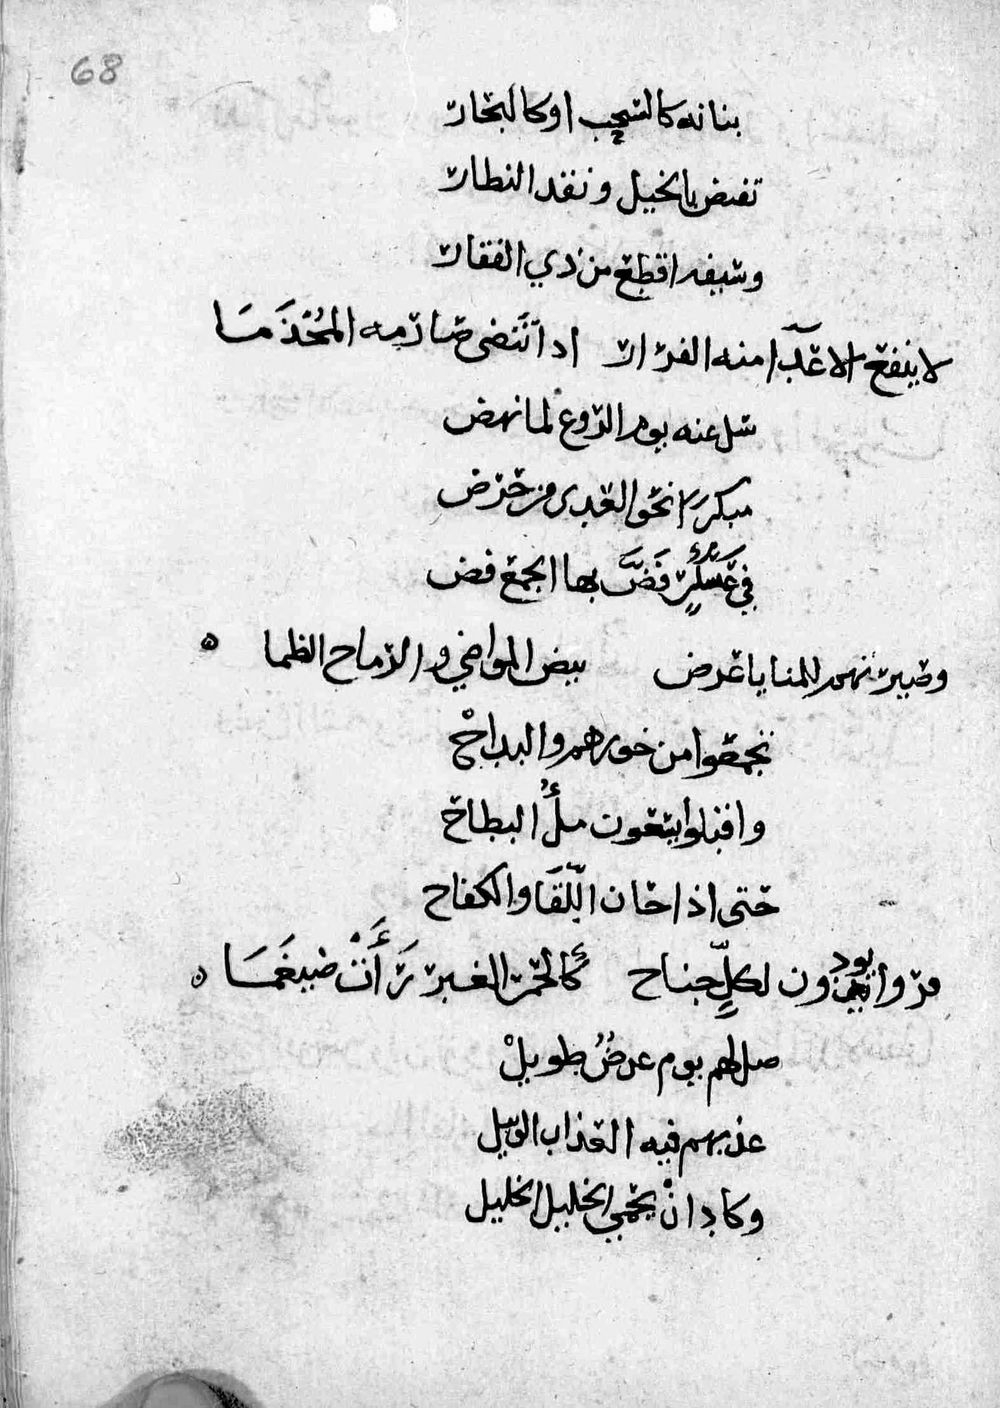 68
بنانه كالسحب اوكالبحار
تفيض بالخيل ونقد النظار
وسيفه اقطع من ذي الفقار
لا ينفع الاعدا منه الفرار اذا انتضى صارمه المخذما
سل عنه يوم الروع لما نهض
مبكرا نحو العدى
في عسكر فض بها الجمع فض
وصيرتهم للمنايا غرض بيض المواضي والرماح الظما ه
تجمعوا من خورهم والبداح
واقبلوا يسعون ملأ البطاح
حتى اذا حان اللقا والكفاح
فروا يودون لكل جناح كالحمر الغبر رأت ضيغما ه
صالهم يوم عرض طويل
عذبهم فيه العذاب الوبيل
وكاد ان يحمي الخليل الخليل